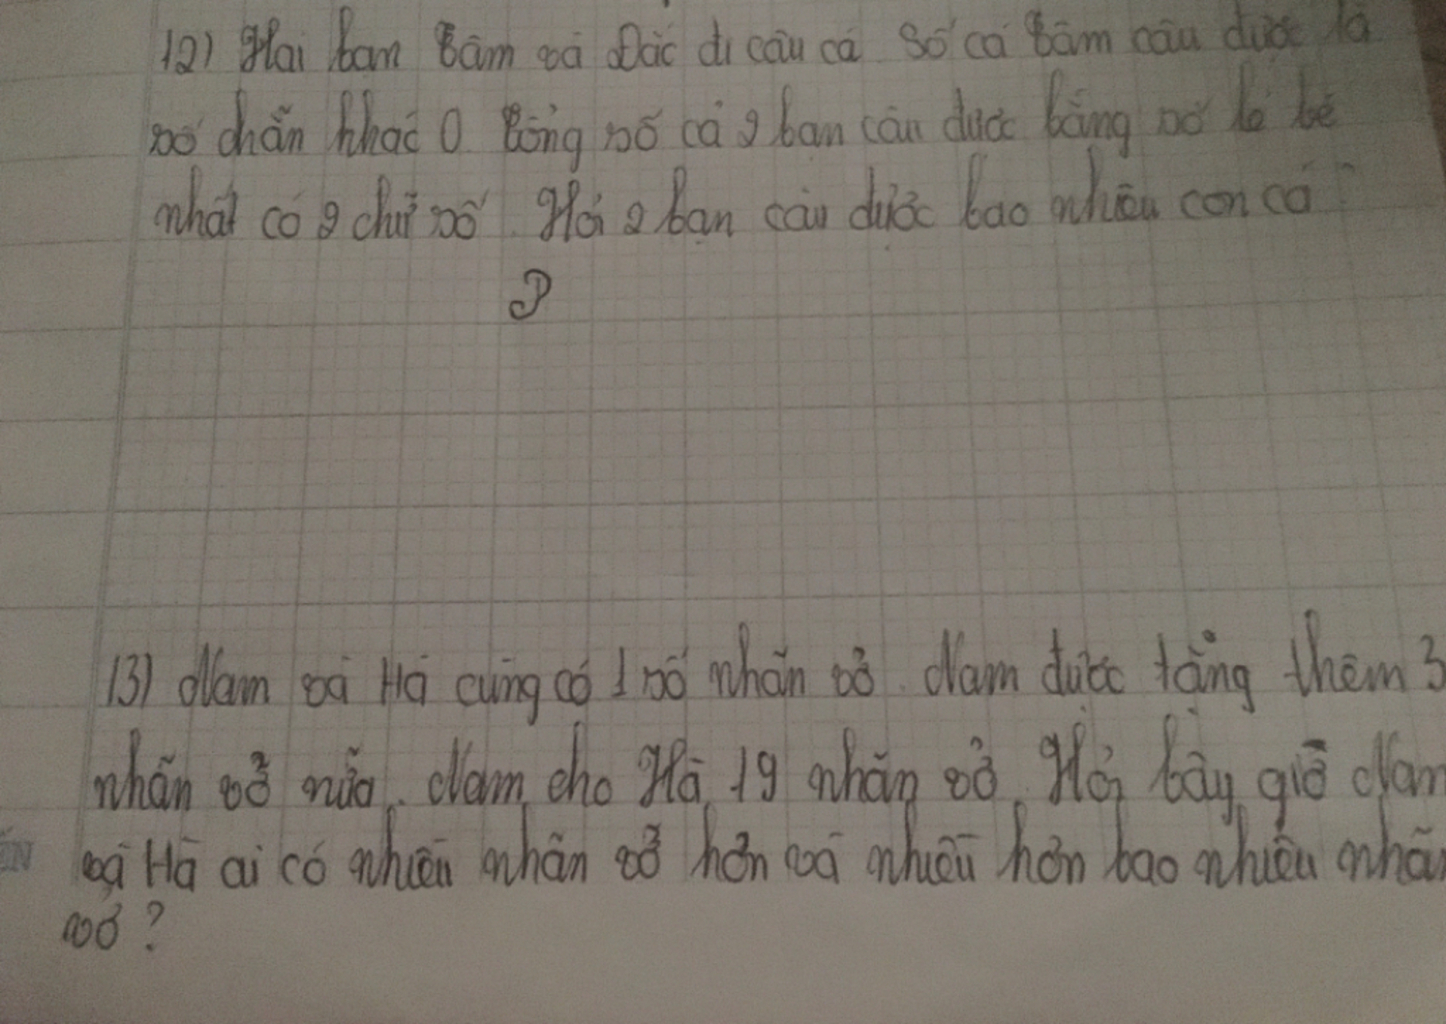 12) Hai bạn Tâm và Đức đi câu cá Số cá Tâm câu được là
số chẵn khác 0 Tổng số cá 2 bạn câu được bằng số lẻ bé
nhất có 2 chữ số. Hỏi 2 bạn câu được bao nhiêu con cá
?
13) Nam và Hà cùng có 1 số nhãn vở. Nam được tặng thêm 3
nhãn vở nữa. Nam cho Hà 19 nhãn vở. Hỏi bây giờ Nam
và Hà ai có nhiều nhãn vở hơn và nhiều hơn bao nhiêu nhãn
vở?